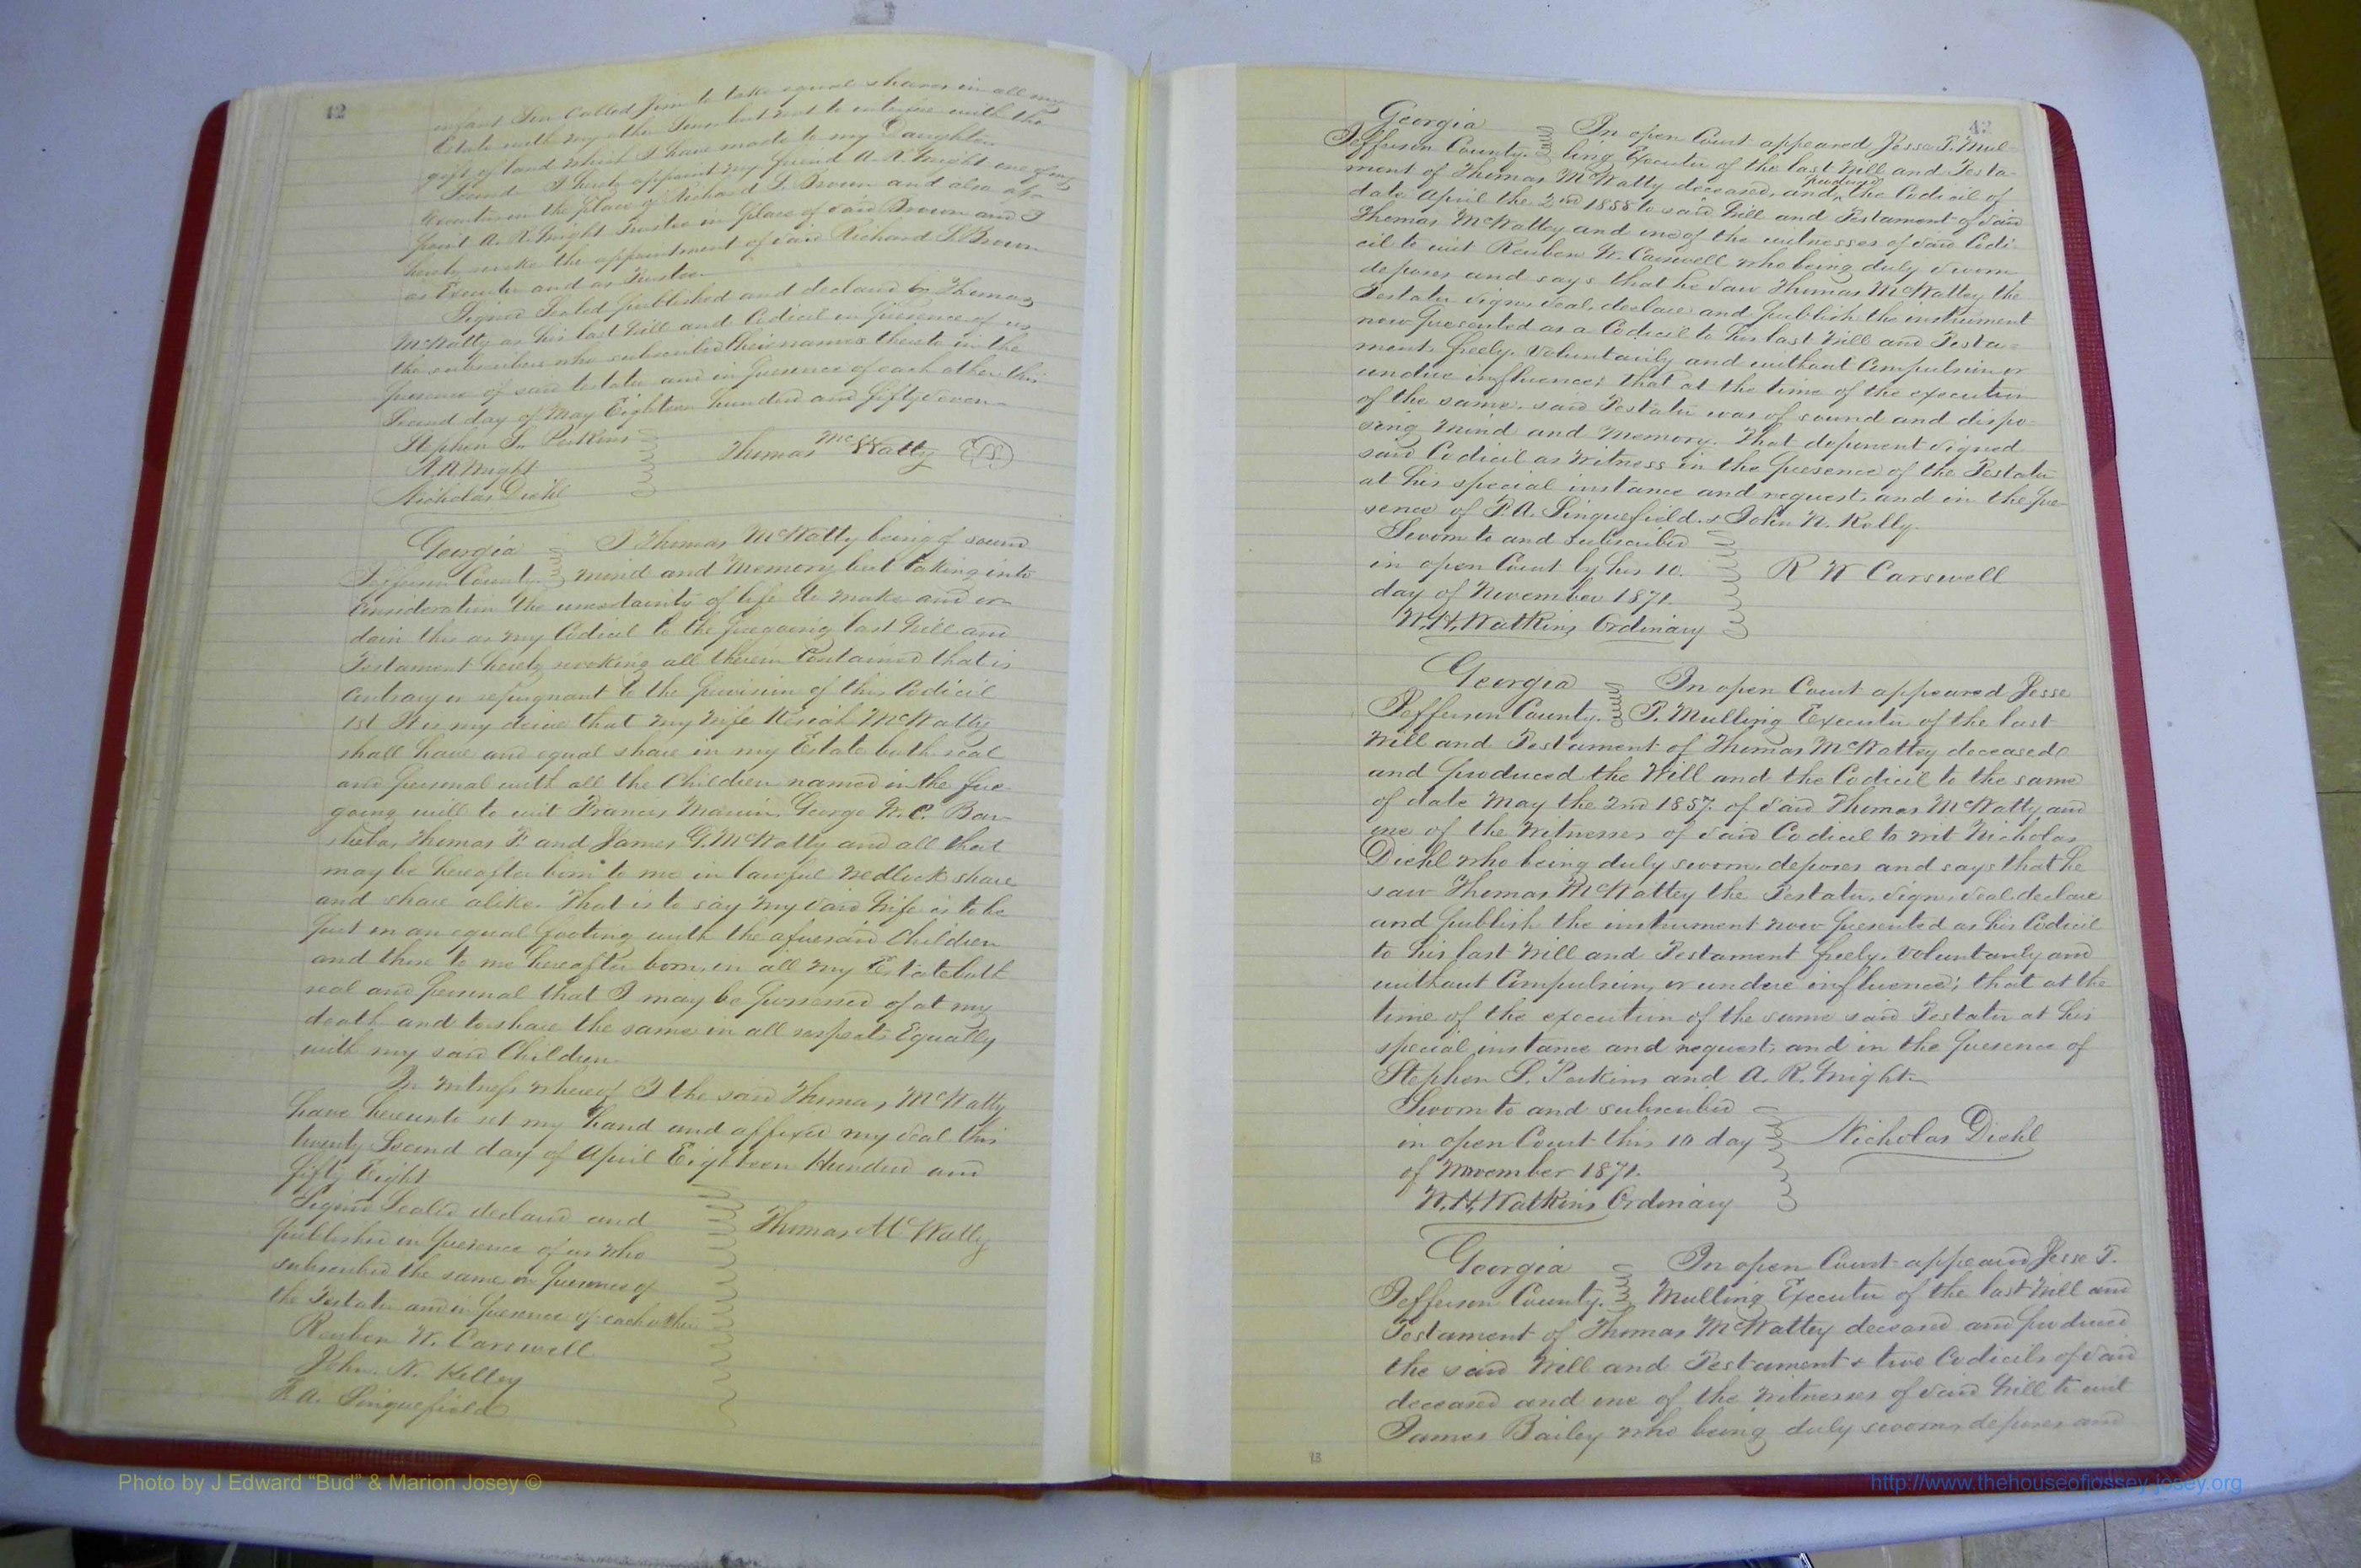 42
infant Son Called Jim to take equal shares in all my
Estate with my other Sons but not to interfere with the
gift of land which I have made to my Daughter
Second I hereby appoint my friend A. R. Wright one of my
Executors in the place of Richard S. Brown and also ap-
point A. R. Wright Trustee in place of said Brown and I
hereby revoke the appointment of said Richard S. Brown
as Executor and as Trustee.
Signed Sealed published and declared by Thomas
McWatty as his last Will and Codicil in presence of us
the subscribers who subscribed their names thereto in the
presence of said testator and in presence of each other this
Second day of May Eighteen hundred and fifty Seven
Stephen S. Perkins
Thomas McWatty (LS)
A R Wright
Nicholas Diehl
Georgia I Thomas McWatty being of sound
Jefferson County. mind and Memory but taking into
Consideration the uncertainty of life do make and or-
dain this as my Codicil to the foregoing last Will and
Testament hereby revoking all therein Contained that is
Contrary or repugnant to the provision of this Codicil
1st It is my desire that my Wife Keziah McWatty
shall have and equal share in my Estate both real
and personal with all the Children named in the fore
going will to wit Francis Marion, George W. C. Bar-
sheba, Thomas P. and James G. McWatty and all that
may be hereafter born to me in lawful Wedlock share
and share alike. That is to say my said Wife is to be
put on an equal footing with the aforesaid Children
and those to me hereafter born, in all my Estate both
real and personal that I may be possessed of at my
death and to share the same in all respects Equally
with my said Children
In witness whereof I the said Thomas McWatty
have hereunto set my hand and affixed my seal this
twenty Second day of April Eighteen Hundred and
fifty Eight
Signed Sealed declared and
published in presence of us who
Thomas McWatty
subscribed the same in presence of
the Testator and in presence of each other
Reuben W. Carswell
John. N. Kelley
F. A. Sinquefield
43
Georgia In open Court appeared Jesse T. Mul-
Jefferson County. ling Executor of the last Will and Testa-
ment of Thomas McWatty deceased, and produced the Codicil of
date April the 22nd 1858 to said Will and Testament of said
Thomas McWattey and one of the witnesses of said Codi-
cil to wit Reuben W. Carswell who being duly sworn
deposes and says that he saw Thomas McWattey the
Testator sign, seal, declare and publish the instrument
now presented as a Codicil to his last Will and Testa-
ment, freely, voluntarily and without Compulsion or
undue influence; that at the time of the execution
of the same, said Testator was of sound and dispo-
sing Mind and Memory. That deponent signed
said Codicil as Witness in the presence of the Testator
at his special instance and request, and in the pre-
sence of F. A. Sinquefield. & John N. Kelly.
Sworn to and subscribed
in open Court by his 10.
R W Carswell
day of November 1871.
W. H. Watkins Ordinary
Georgia In open Court appeared Jesse
Jefferson County. T. Mulling Executor of the last
Will and Testament of Thomas McWattey deceased
and produced the Will and the Codicil to the same
of date May the 2nd 1857. of said Thomas McWatty and
one of the Witnesses of said Codicil to wit Nicholas
Diehl who being duly sworn, deposes and says that he
saw Thomas McWattey the Testator, sign, seal declare
and publish the instrument now presented as his Codicil
to his last Will and Testament freely, voluntarily and
without Compulsion, or undue influence; that at the
time of the execution of the same said Testator at his
special instance and request, and in the presence of
Stephen S. Perkins and A. R. Wright.
Sworn to and subscribed
in open Court this 10 day
Nicholas Diehl
of November 1871.
W. H. Watkins Ordinary
Georgia In open Court appeared Jesse T.
Jefferson County. Mulling Executor of the last Will and
Testament of Thomas McWattey deceased and produced
the said Will and Testament & two Codicils of said
deceased and one of the Witnesses of said Will to wit
James Bailey who being duly sworn, deposes and
13
Photo by J Edward “Bud” & Marion Josey ©
http://www.thehouseofjossey-josey.org